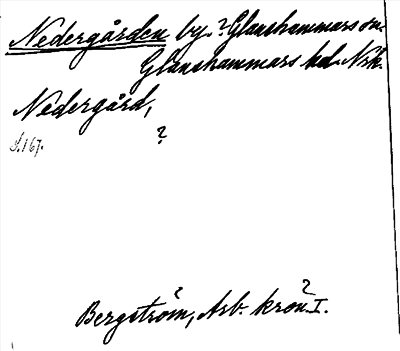 Nedergården by. ? Glanshammars sn.
Glanshammars hd. Nrk.
Nedergård,
?
S. 167.
Bergström, Arb. krön. I.
? ?